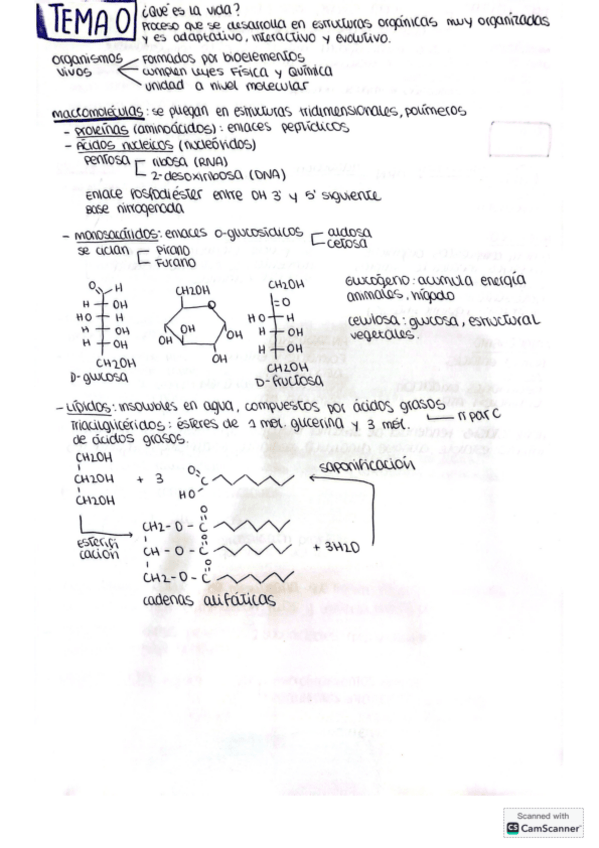 TEMA 0
¿Qué es la vida?
Proceso que se desarrolla en estructuras orgánicas muy organizadas
y es adaptativo, interactivo y evolutivo.
organismos vivos
Formados por bioelementos
cumplen leyes Física y Química
unidad a nivel molecular
macromoléculas: se pliegan en estructuras tridimensionales, polímeros
- proteínas (aminoácidos): enlaces peptídicos
- Ácidos nucleicos (nucleótidos)
pentosa
ribosa (RNA)
2-desoxirribosa (DNA)
Enlace fosfodiéster entre OH 3' y 5' siguiente
Base nitrogenada
- monosacáridos: enlaces o-glucosídicos
aldosa
cetosa
se ciclan
Pirano
Furano
O H
H OH
HO H
H OH
H OH
CH2OH
D-glucosa
CH2OH
O
OH
OH
OH
OH
CH2OH
=O
HO H
H OH
H OH
CH2OH
D-fructosa
Glucógeno: acumula energía
animales, hígado
celulosa: glucosa, estructural
vegetales.
- Lípidos: insolubles en agua, compuestos por ácidos grasos
n par C
Triacilglicéridos: ésteres de 1 mol. glicerina y 3 mol.
de ácidos grasos.
CH2OH
CH2OH + 3
CH2OH
O
C
HO
saponificación
esterifi
cación
O
CH2-O-C
O
CH-O-C
O
CH2-O-C
+ 3H2O
cadenas alifáticas
Scanned with
CS CamScanner